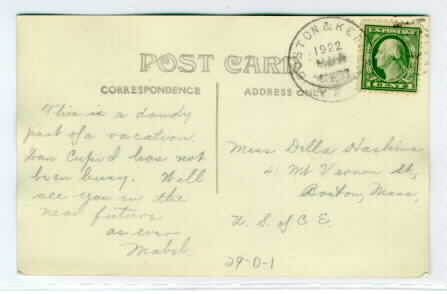 POST CARD
CORRESPONDENCE
ADDRESS ONLY
BOSTON & KE
1922
1 CENT 1
This is a dandy
part of a vacation
Dan Cupid has not
been busy. Will
see you in the
near future
as ever
Mabel.
Miss Della Haskins
41 Mt Vernon St,
Boston, Mass.
U. S. of C E.
29-0-1